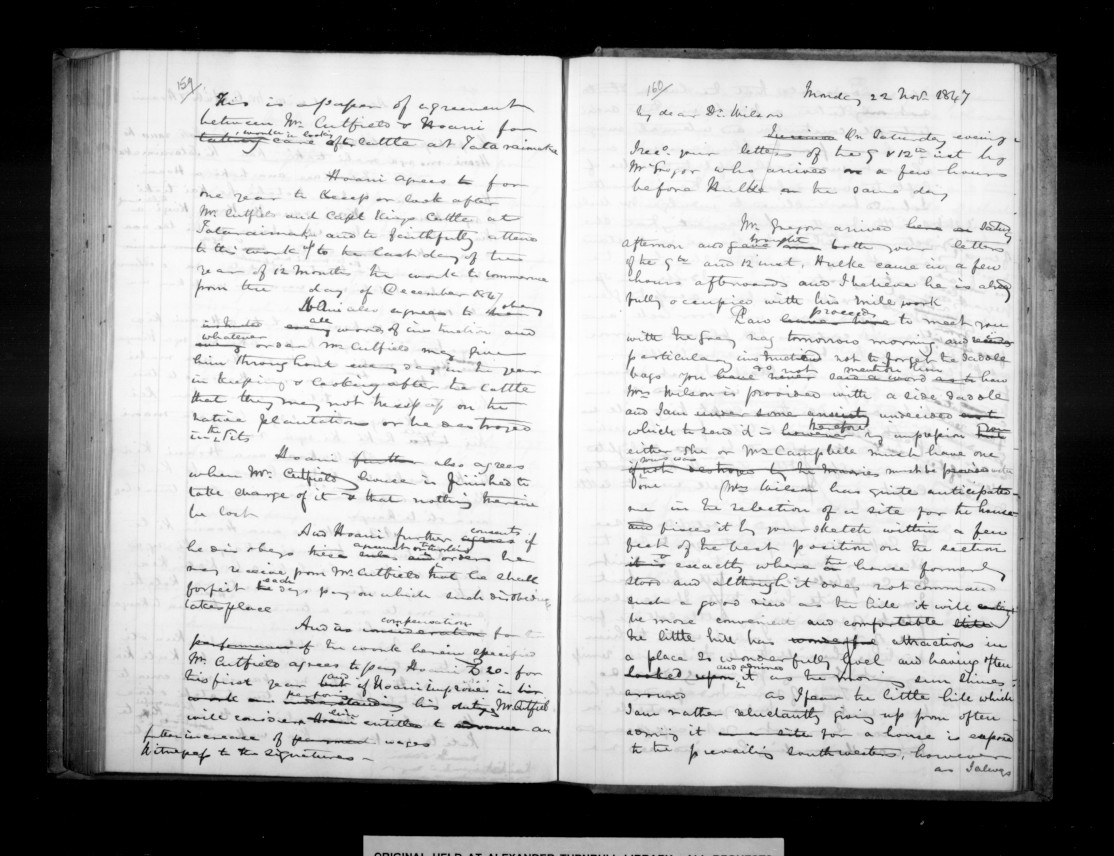 159/
This is a paper of agreement
between Mr. Cutfield & Hoani for
taking work in looking care after cattle at Tataraimaka
Hoani agrees to for
one year to keep or look after
Mr. Cutfield and Capt Kings Cattle at
Tataraimaka and to faithfully attend
to this work up to the last day of this
year of 12 months the work to commence
from the day of December 1847
Hoani also agrees to
all words of instruction and
whatever order Mr. Cutfield may give
him throughout every day in the year
in keeping & looking after the cattle
that they may not trespass on the
native plantation or be destroyed
in the Pits
Hoani further also agrees
when Mr. Cutfield's house is finished to
take charge of it & that nothing therein
be lost
And Hoani further consents if
he disobeys these orders he
may receive from Mr. Cutfield that he shall
forfeit each days pay on which such disobedience
takes place
And as compensation consideration for the
performance of the work herein specified
Mr. Cutfield agrees to pay Hoani £20. for
this first year and if Hoani improves in his
work an understanding his duty Mr. Cutfield
will consider him entitled to an
increase of wages
Witness to the signatures —
160/
Monday 22 Nov. 1847
My dear Dr. Wilson
On Saturday evening
I recd. your letters of the 9 & 12th inst by
Mr Gregor who arrived a few hours
before Hulke on the same day
Mr. Gregor arrived here on Saturday
afternoon and brought both your letters
of the 9th and 12 inst, Hulke came in a few
hours afterwards and I believe he is already
fully occupied with his mill work
proceeds to meet you
with the grey nag tomorrow morning and
particular instruction not to forget the saddle
bags you have never said a word as to how
do not mention
Mrs Wilson is provided with a side saddle
and I am under some anxiety undecided
which to send it is however therefore my impression that
either She or Mrs Campbell must have one
if not destroyed by the Maories must be provided with
one
Mrs Wilson has quite anticipated
me in the selection of a site for the house
and fixes it by your sketch within a few
feet of the best position on the section
it is exactly where the house formerly
stood and although it does not command
such a good view as the hill it will
be more convenient and comfortable
the little hill has wonderful attractions in
a place so wonderfully level and having often
looked upon it as the morning sun shines
and admired
around as I pass the little hill which
I am rather reluctantly giving up from often
it as a site for a house is exposed
to the prevailing South westers, however
as I always
ORIGINAL HELD AT ALEXANDER TURNBULL LIBRARY